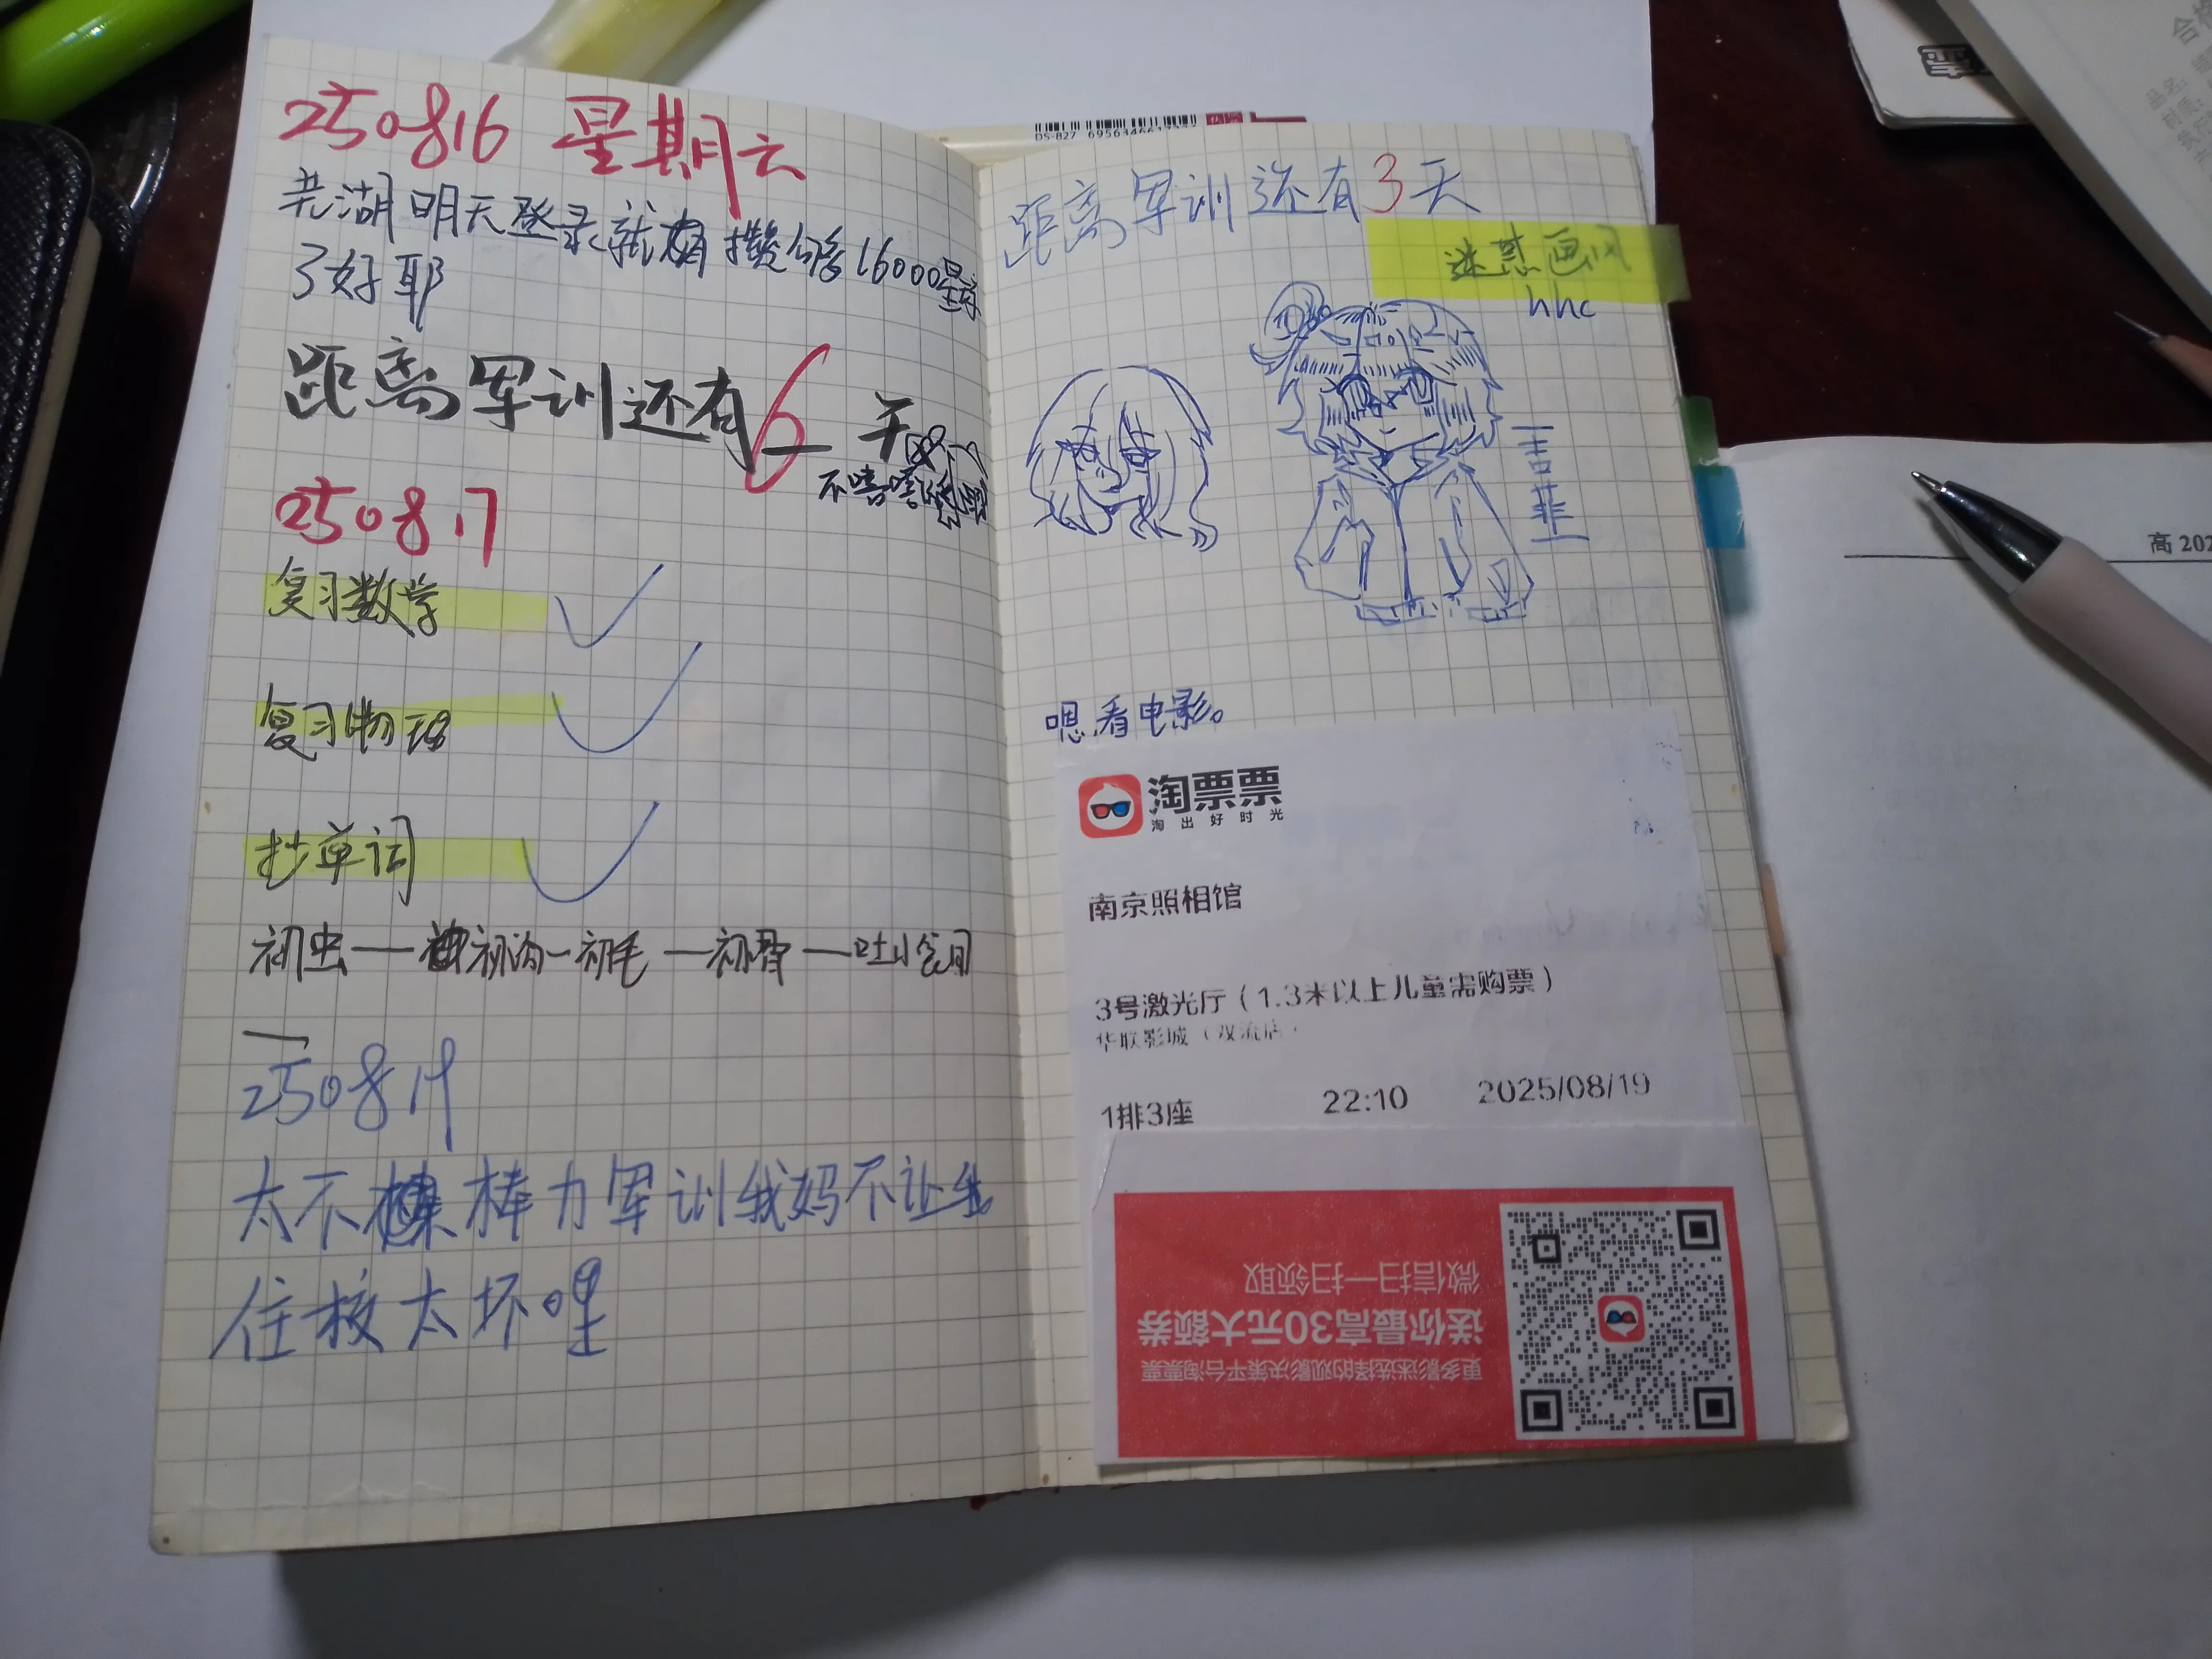 250816 星期六
芜湖 明天登录就有攒够16000星琼
了好耶
距离军训还有6天
不嘻嘻
250817
复习数学
复习物理
抄单词
250819
太不棒力军训我妈不让我
住校太坏哩
DS-827
距离军训还有3天
迷惑画风
hhc
嗯,看电影。
淘票票
淘出好时光
南京照相馆
3号激光厅（1.3米以上儿童需购票）
华联影城（双流店）
1排3座 22:10 2025/08/19
微信扫一扫领取
送你最高30元大额券
更多影迷选择的观影决策平台淘票票
高 202
合格
品名: